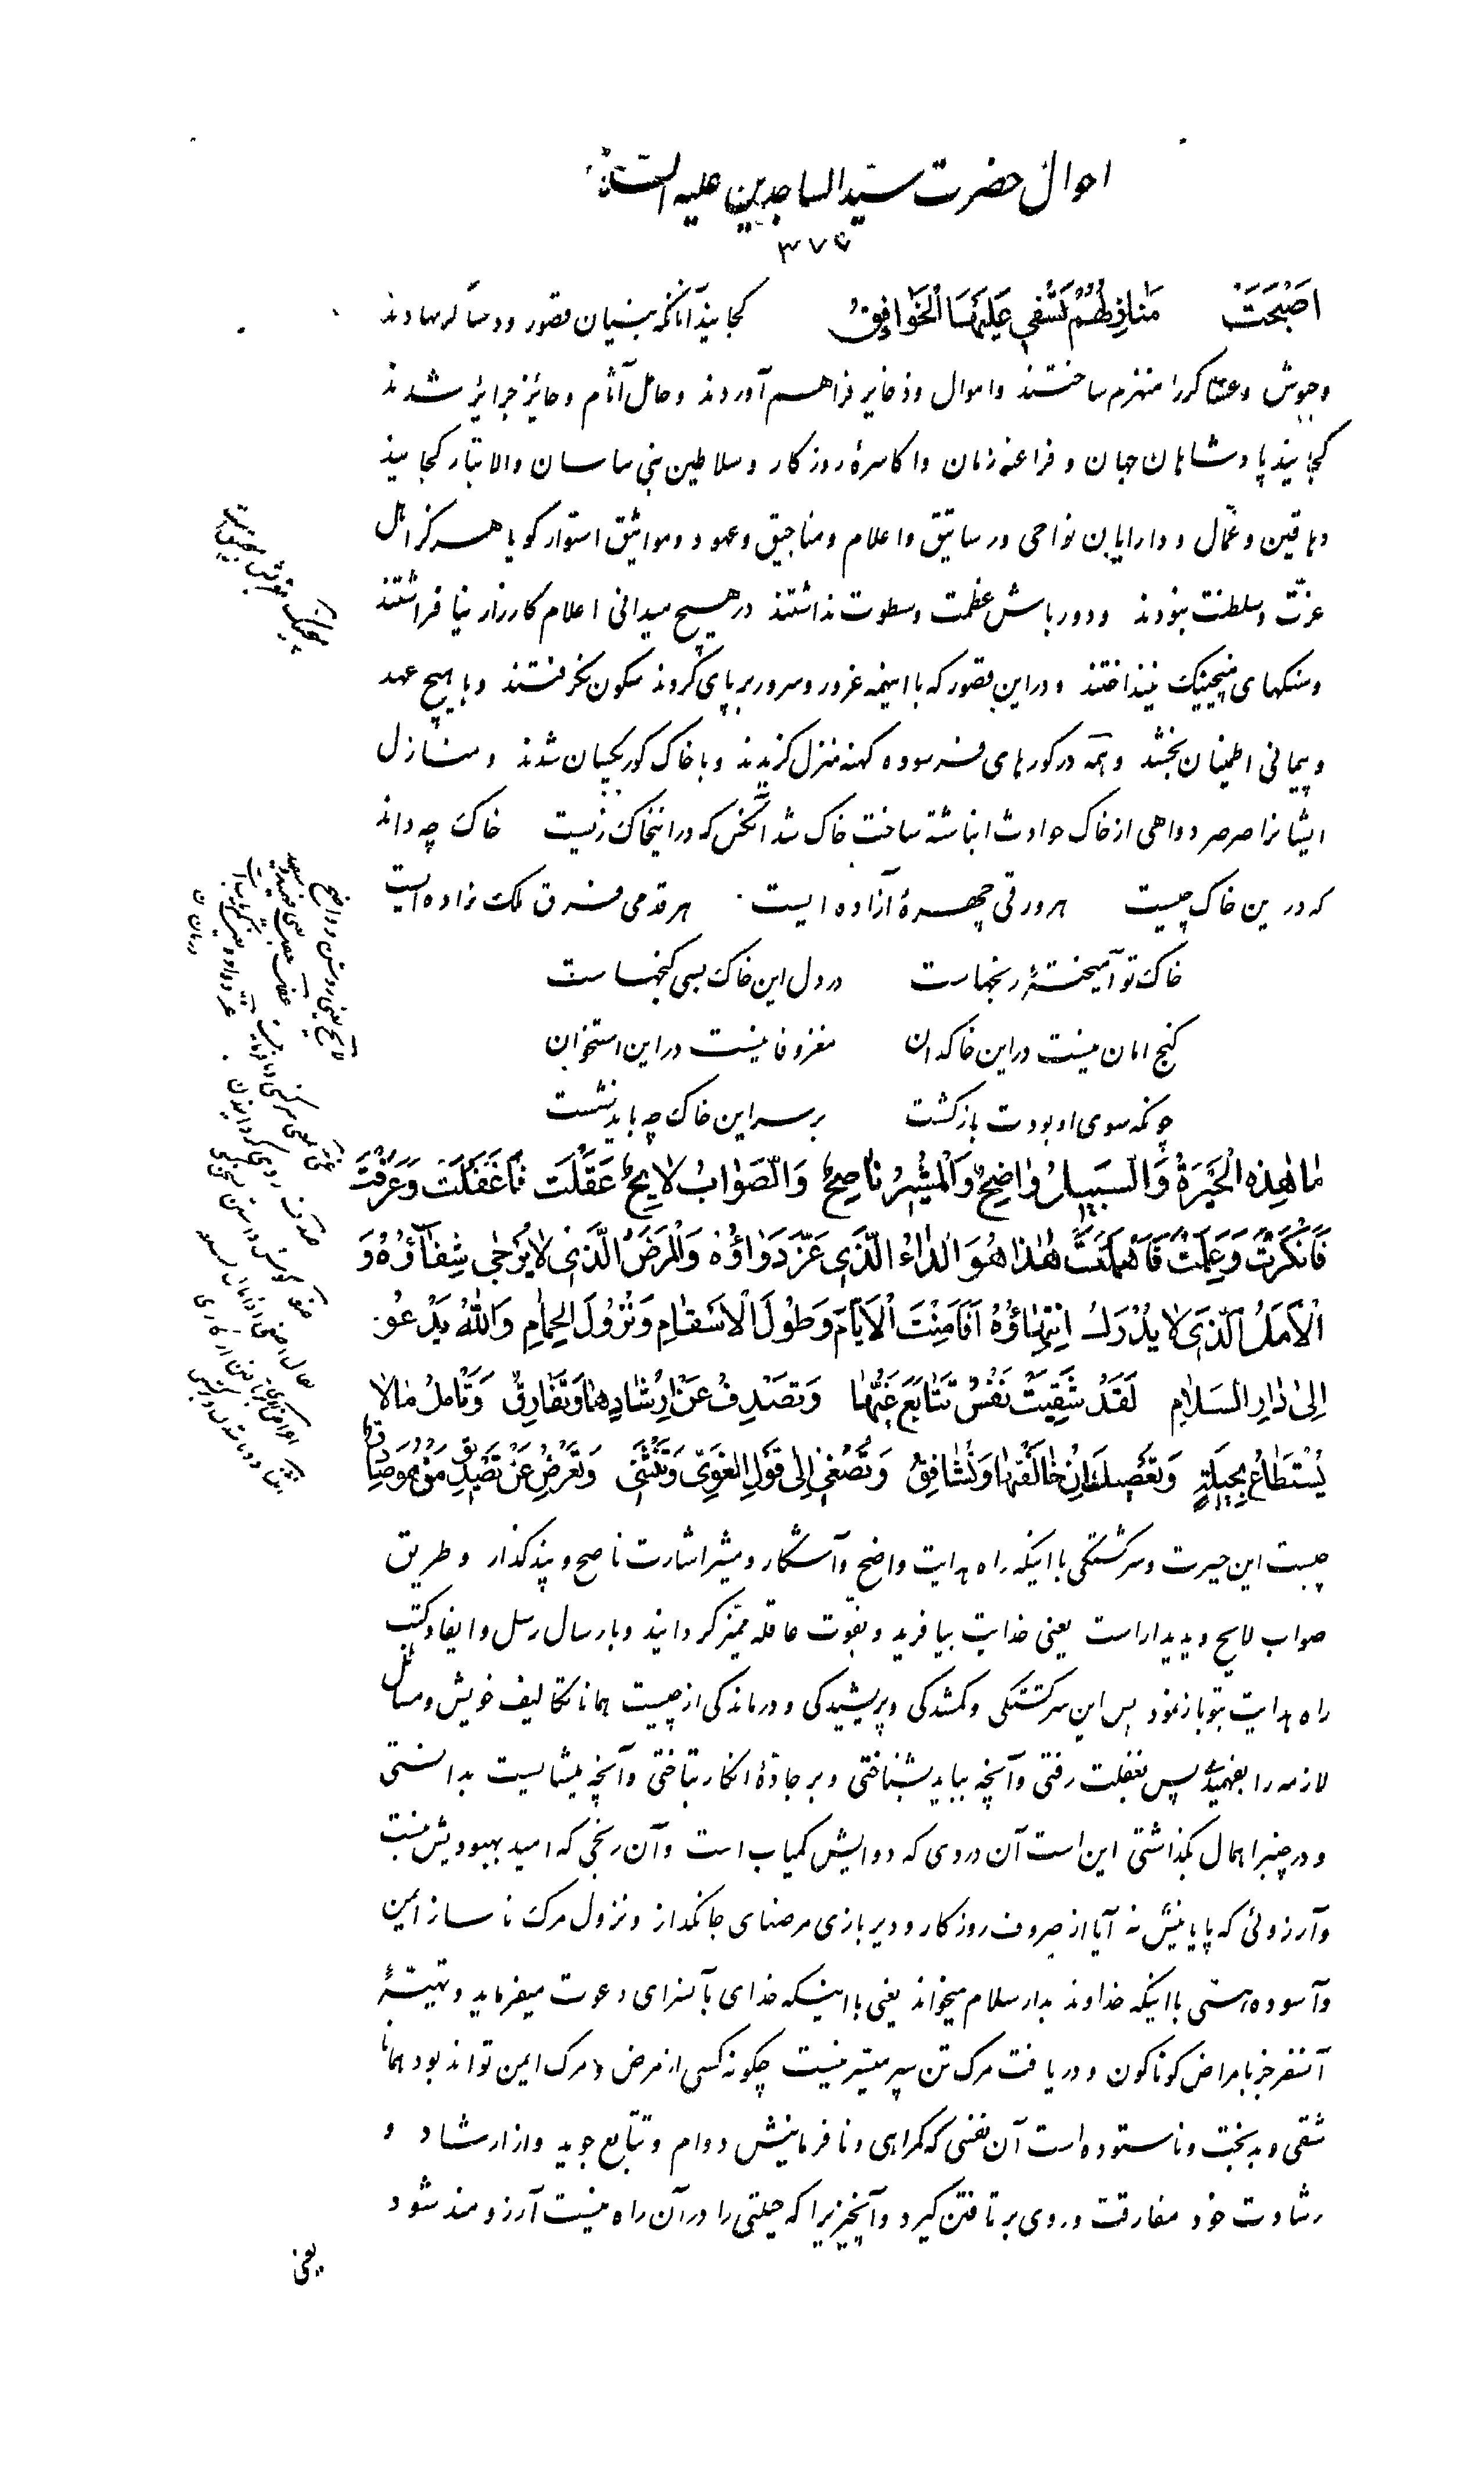 احوال حضرت سیّد الساجدین علیه السّلام
۳۷۶
اَصْبَحَتْ مَنازِلُهُمْ تَسْفی عَلَیْهَا الْخَوافِقُ کجایند آنانکه بنیان قصور و دساکر نهادند
وجیوش و عساکر را منهزم ساختند و اموال و ذخایر فراهم آوردند و حامل آثام و حائز جرایر شدند
کجایند پادشاهان جهان و فراعنه زمان و اکاسرهٔ روزگار و سلاطین بنی ساسان والا تبار کجایند
دهاقین و عمّال و دارایان نواحی و رساتیق و اعلام و مناجیق و عهود و مواثیق استوار گویا هرگز اهل
عزت و سلطنت نبودند و دورباش عظمت و سطوت نداشتند در هیچ میدانی اعلام کارزار نیافراشتند
و سنگهای منجنیک نینداختند و در این قصور که با اینهمه غرور و سرور بر پای کردند سکون نگرفتند و با هیچ عهد
و پیمانی اطمینان نجستند و همه در گورهای فرسوده کهنه منزل گزیدند و با خاک گور یکسان شدند و منازل
ایشانرا صرصر دواهی از خاک حوادث انباشته ساخت خاک شد آنکس که در اینخاک زیست خاک چه داند
که در ین خاک چیست هر ورقی چهرهٔ آزاده ایست هر قدمی فرق ملک زاده ایست
خاک تو آمیختهٔ رنجهاست در دل این خاک بسی گنجهاست
کنج امان نیست در این خاکدان مغز وفا نیست در این استخوان
چونکه سوی او بودت بازگشت بر سر این خاک چه باید نشست
مٰا هٰذِهِ الْحَیْرَةُ وَالسَّبیلُ وٰاضِحٌ وَالْمُشیرُ نٰاصِحٌ وَالصَّوٰابُ لٰایِحٌ عَقَلْتَ فَاَغْفَلْتَ وَعَرَفْتَ
فَاَنْکَرْتَ وَعَلِمْتَ فَاَهْمَلْتَ هٰذا هُوَ الدّٰاءُ الَّذی عَزَّ دَوٰاؤُهُ وَالْمَرَضُ الَّذی لٰا یُرْجٰی شِفٰاؤُهُ وَ
الْاَمَلُ الَّذی لٰا یُدْرَکُ اِنْتِهٰاؤُهُ اَفَاَمِنْتَ الْاَیّٰامَ وَطُولَ الْاَسْقٰامِ وَنُزُولَ الْحِمٰامِ وَاللّٰهُ یَدْعُو
اِلیٰ دٰارِ السَّلٰامِ لَقَدْ شَقِیَتْ نَفْسٌ تَتٰابَعَ غَیُّهٰا وَتَصْدِفُ عَنْ اِرْشٰادِهٰا وَتُفٰارِقُ وَتَأْمُلُ مٰا لٰا
یُسْتَطٰاعُ بِحیلَةٍ وَتَعْصیکَ اِنْ خٰالَفْتَهٰا وَتُشٰاقِقُ وَتُصْغی اِلیٰ قَوْلِ الْغَوِیِّ وَتَنْثَنی وَتُعْرِضُ عَنْ تَصْدیقِ مَنْ هُوَ صٰادِقٌ
چیست این حیرت و سرگشتگی با اینکه راه هدایت واضح و آشکار و مشیر اشارت ناصح و پندگذار و طریق
صواب لایح و پدیدار است یعنی خدایت بیافرید و بقوت عاقله ممیّز گردانید و بارسال رسل و ایفاد کتب
راه هدایت بتو باز نمود پس این سرگشتگی و گمشدگی و پریشیدگی و درماندگی از چیست همانا تکالیف خویش و مسائل
لازمه را بفهمیدی پس بغفلت رفتی و آنچه بباید بشناختی و بر جادّهٔ انکار بتاختی و آنچه میشایست بدانستی
و در چنبر اهمال بگذاشتی این است آن دردی که دوایش کمیاب است و آن رنجی که امید بهبودیش نیست
و آرزوئی که پایانیش نه آیا از صروف روزگار و دیربازی مرضهای جانگداز و نزول مرگ ناساز ایمن
و آسوده هستی با اینکه خداوند بدار سلام میخواند یعنی با اینکه خدای بآنسرای دعوت میفرماید و تهیّهٔ
آنسفر جز بامراض گوناگون و دریافت مرگ تن سپر میسّر نیست چگونه کسی از مرض و مرگ ایمن تواند بود همانا
شقی و بدبخت و ناستوده است آن نفسی که گمراهی و نافرمانیش دوام و تتابع جوید و از ارشاد و
رشادت خود مفارقت و روی بر تافتن گیرد و آنچیزیرا که حیلتی را در آن راه نیست آرزومند شود
یعنی